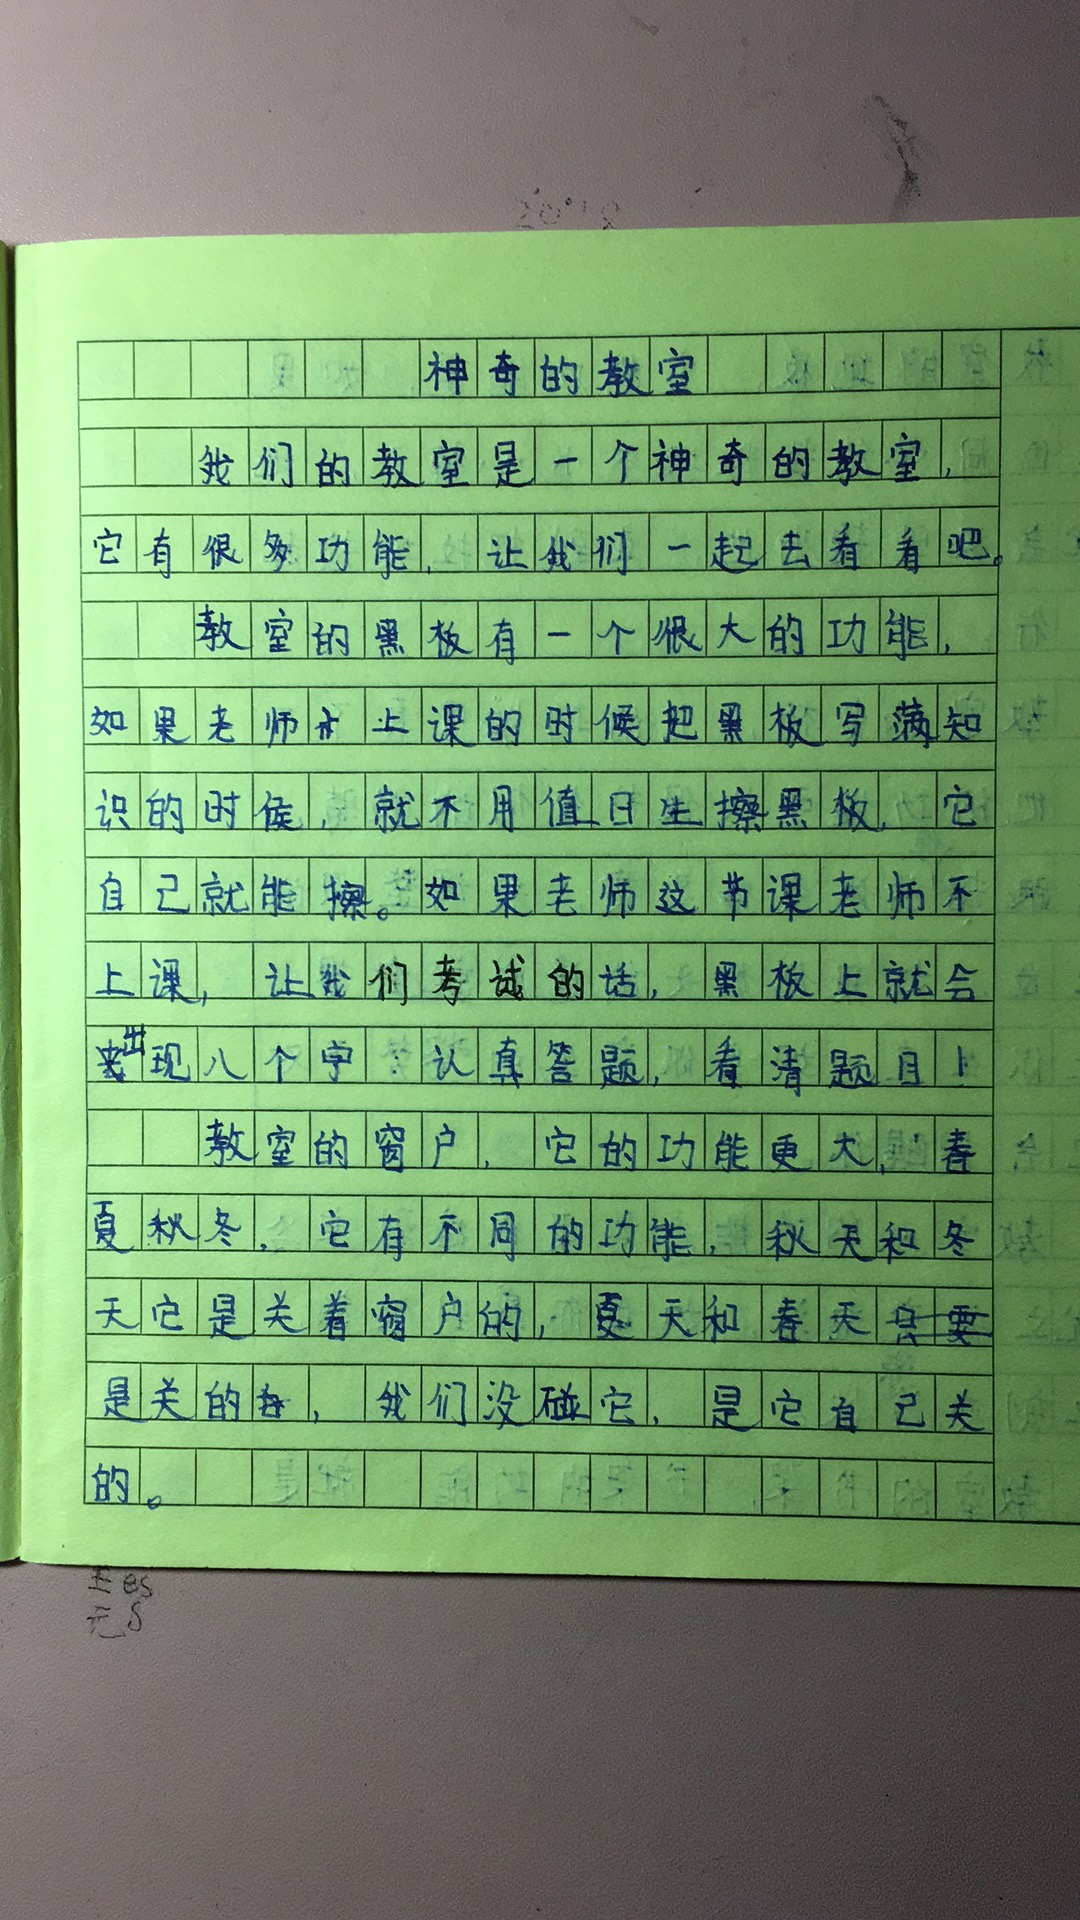 神奇的教室
我们的教室是一个神奇的教室，
它有很多功能，让我们一起去看看吧。
教室的黑板有一个很大的功能，
如果老师才上课的时候把黑板写满知
识的时候，就不用值日生擦黑板，它
自己就能擦。如果老师这节课老师不
上课，让我们考试的话，黑板上就会
出现八个字：认真答题，看清题目！
教室的窗户，它的功能更大，春
夏秋冬，它有不同的功能，秋天和冬
天它是关着窗户的，夏天和春天
是关的，我们没碰它，是它自己关
的。